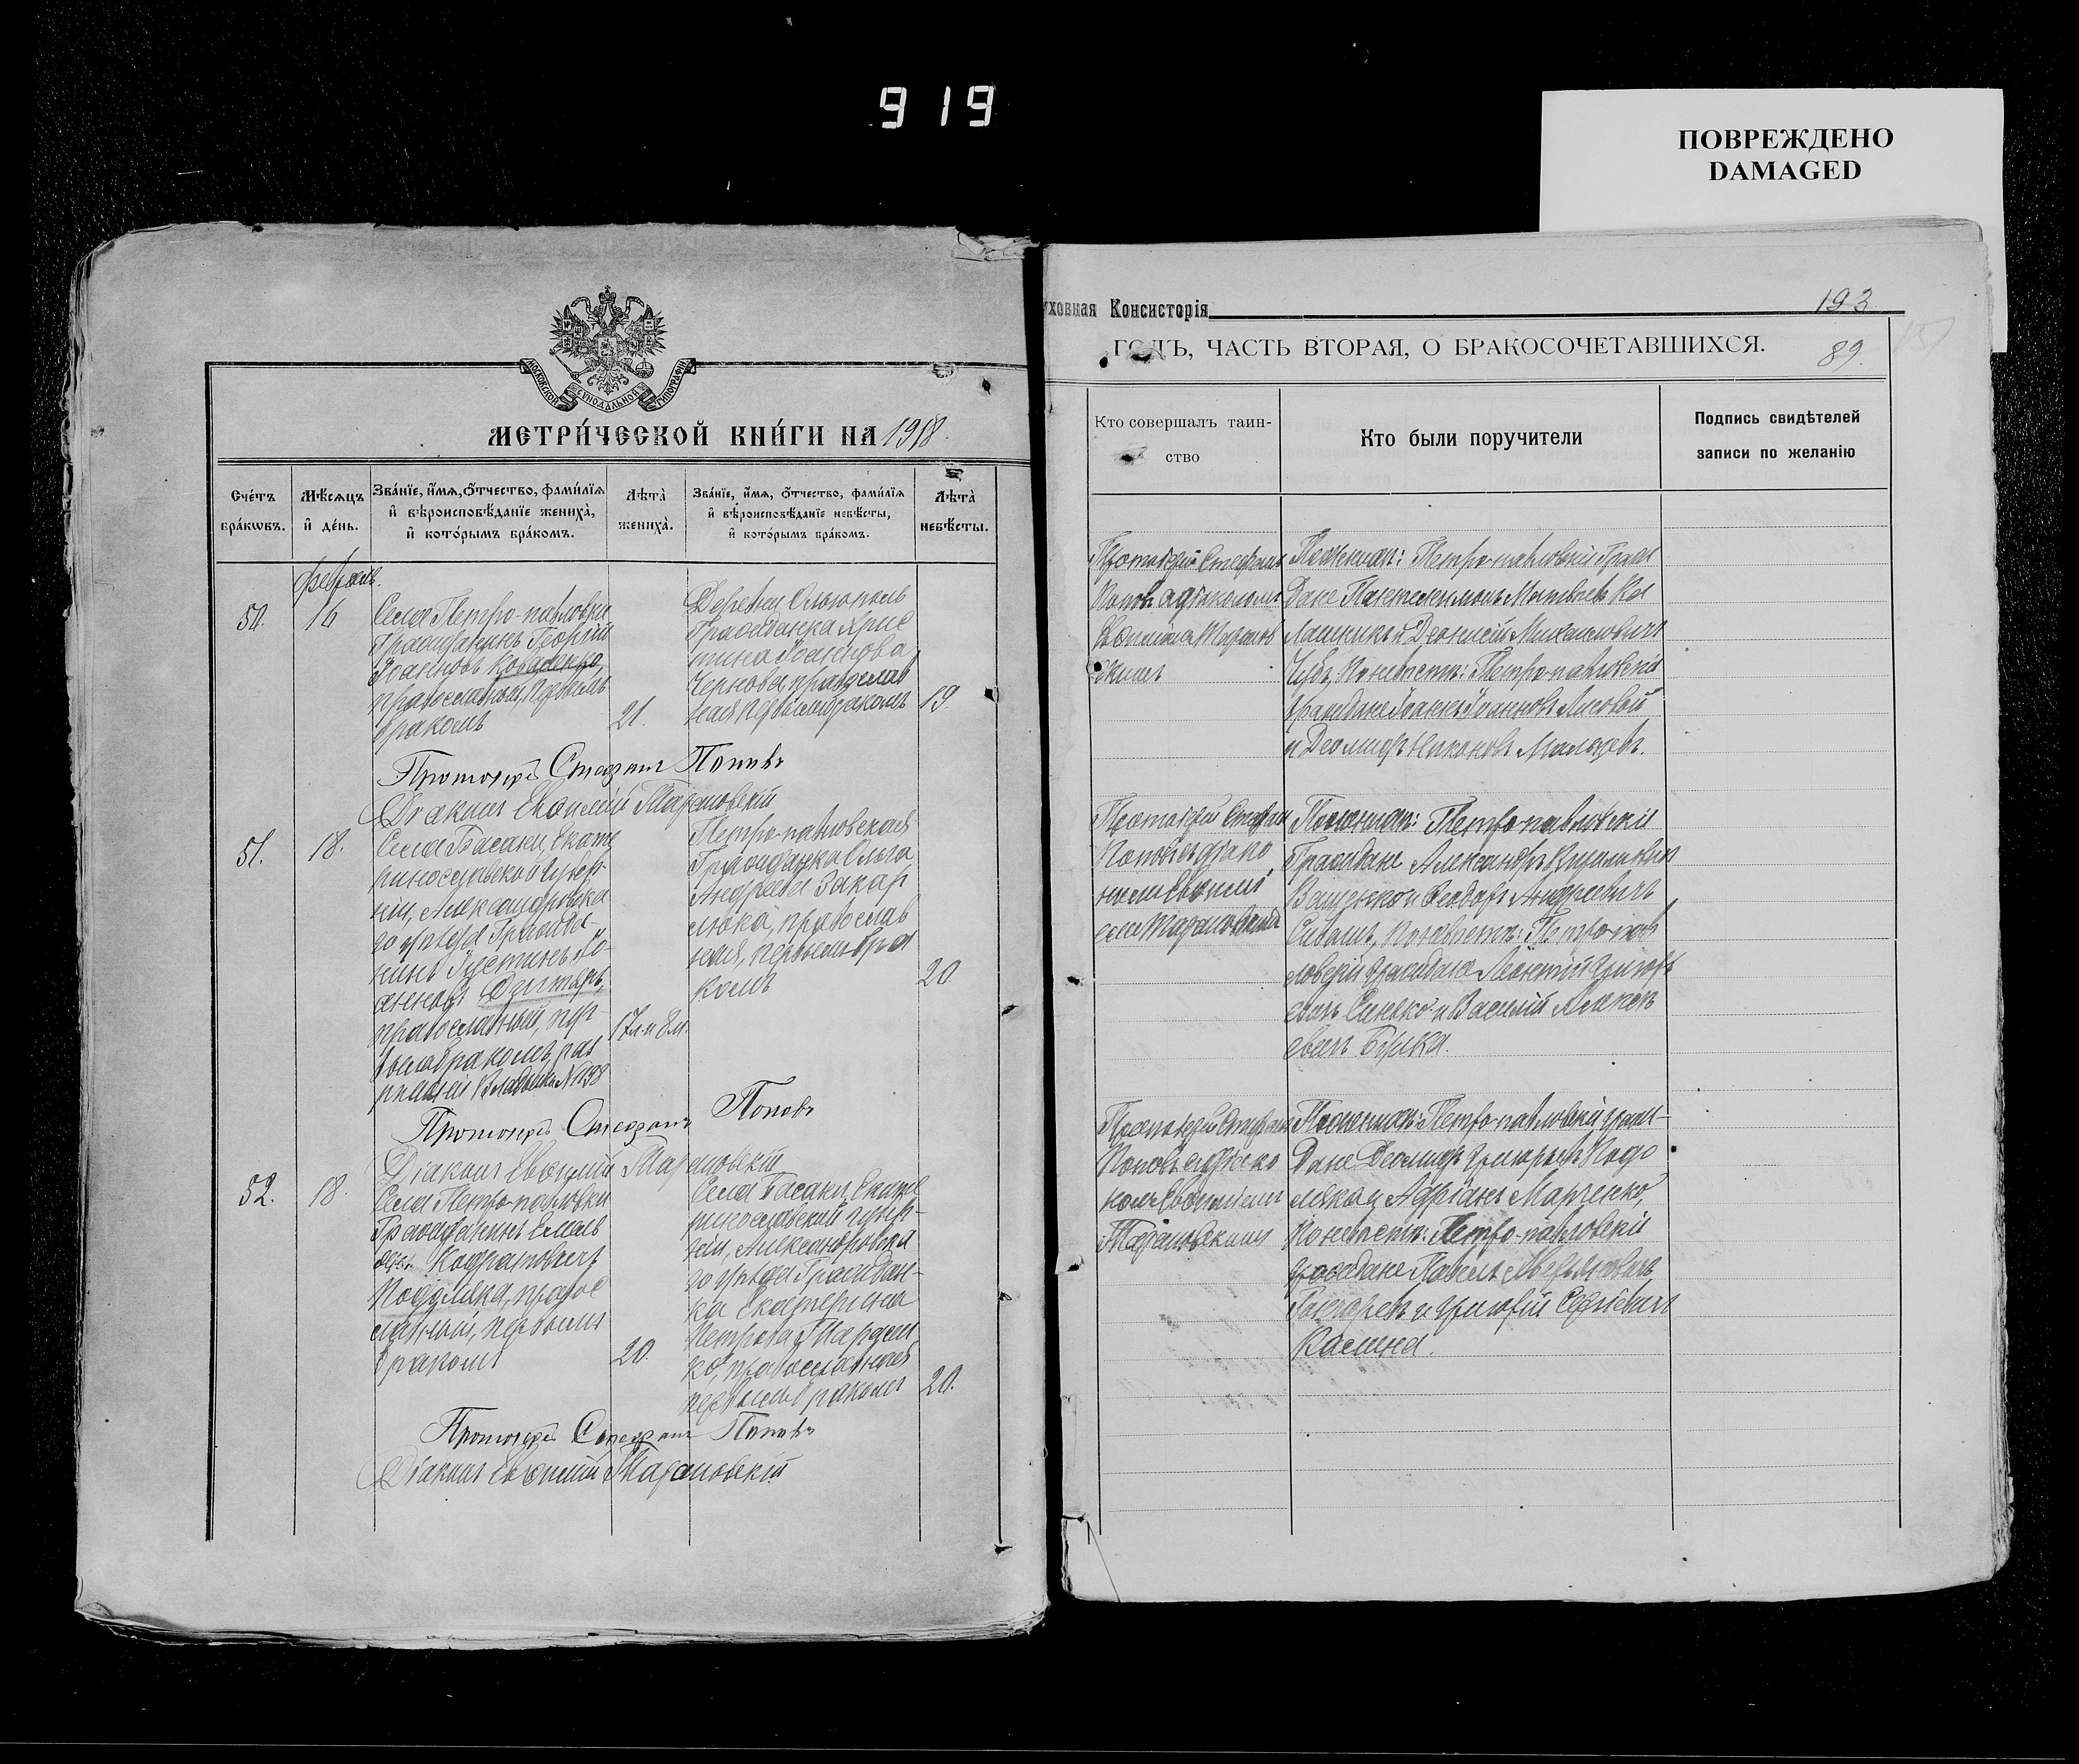 919
ПОВРЕЖДЕНО
DAMAGED
МОСКОВСКОЙ СѴНОДАЛЬНОЙ ТИПОГРАФІИ
МЕТРИ́ЧЕСКОЙ КНИ́ГИ НА 1918.
Сче́тъ бра́кѡвъ.
Мѣ́сяцъ и҆ де́нь.
Зва́нїе, и҆́мѧ, ѻ҆́тчество, фами́лїѧ и҆ вѣроисповѣ́данїе жениха̀, и҆ кото́рымъ бра́комъ.
Лѣта̀ жениха̀.
Зва́нїе, и҆́мѧ, ѻ҆́тчество, фами́лїѧ и҆ вѣроисповѣ́данїе невѣ́сты, и҆ кото́рымъ бра́комъ.
Лѣта̀ невѣ́сты.
Февраль.
50.
16
Села Петро-павловки
Гражданинъ Георгій
Іоанновъ Коваленко,
православный, первымъ
бракомъ
21.
Деревни
Гражданка Хрис
тина Іоаннова
Чернова, православ
ная первымъ бракомъ
19.
Протоіерей Стефанъ Поповъ
Діаконъ Евѳимій Тарановскій
51.
18.
Села Басани, Екате
ринославской губер-
ніи, Александровска
го уѣзда Гражда-
нинъ Іустинъ Іо-
анновъ Дегтярь,
православный, пер-
вымъ бракомъ, раз
рѣшенія Владыки №
17 л. и 8 м.
Петро-павловская
Гражданка Ольга
Андреева Захар
люка, православ
ная, первымъ бра
комъ
20.
Протоіерей Стефанъ Поповъ
Діаконъ Евѳимій Тарановскій
52.
18.
Села Петро-павловки
Гражданинъ Емель
Кодратовичъ
Подуляка, правос
лавный, первымъ
бракомъ
20.
Села Басани, Екате
ринославской губер-
ніи, Александровска
го уѣзда Граждан-
ка Екатерина
Петрова Марчен
ко, православная
первымъ бракомъ
20.
Протоіерей Стефанъ Поповъ
Діаконъ Евѳимій Тарановскій
уховная Консисторія
193
ГОДЪ, ЧАСТЬ ВТОРАЯ, О БРАКОСОЧЕТАВШИХСЯ.
89.
151
Кто совершалъ таин-
ство
Кто были поручители
Подпись свидѣтелей
записи по желанію
Протоіерей Стефанъ
Поповъ съ діакономъ
Евѳиміемъ Таранов
скимъ
По женихѣ: Петро-павловскіе Граж
дане Пантелеимонъ Матвѣевъ Ка
лашникъ и Діонисій Михаиловичъ
Чубъ, по невѣстѣ: Петро-павловскіе
граждане Іоаннъ Іоанновъ Лисовой
и Деомидъ Никоновъ Мальцевъ.
Протоіерей Стефанъ
Поповъ съ діако
номъ Евѳимі
емъ Тарановскимъ
По женихѣ: Петро-павловскіе
Граждане Александръ Кириловичъ
Ващенко и Ѳеодоръ Андреевичъ
Сивашъ, по невѣстѣ: Петро-пав
ловскіе граждане Леонтій Григорь
евичъ Синько и Василій Алексѣ
евичъ Бурка.
Протоіерей Стефанъ
Поповъ съ діако
номъ Евѳиміемъ
Тарановскимъ
По женихѣ: Петро-павловскіе граж-
дане Деомидъ Григорьевъ Поду
ляка и Адріанъ Марченко,
по невѣстѣ: Петро-павловскіе
граждане Павелъ Аверьяновичъ
Гончаревъ и Григорій Сергіевичъ
Калина.